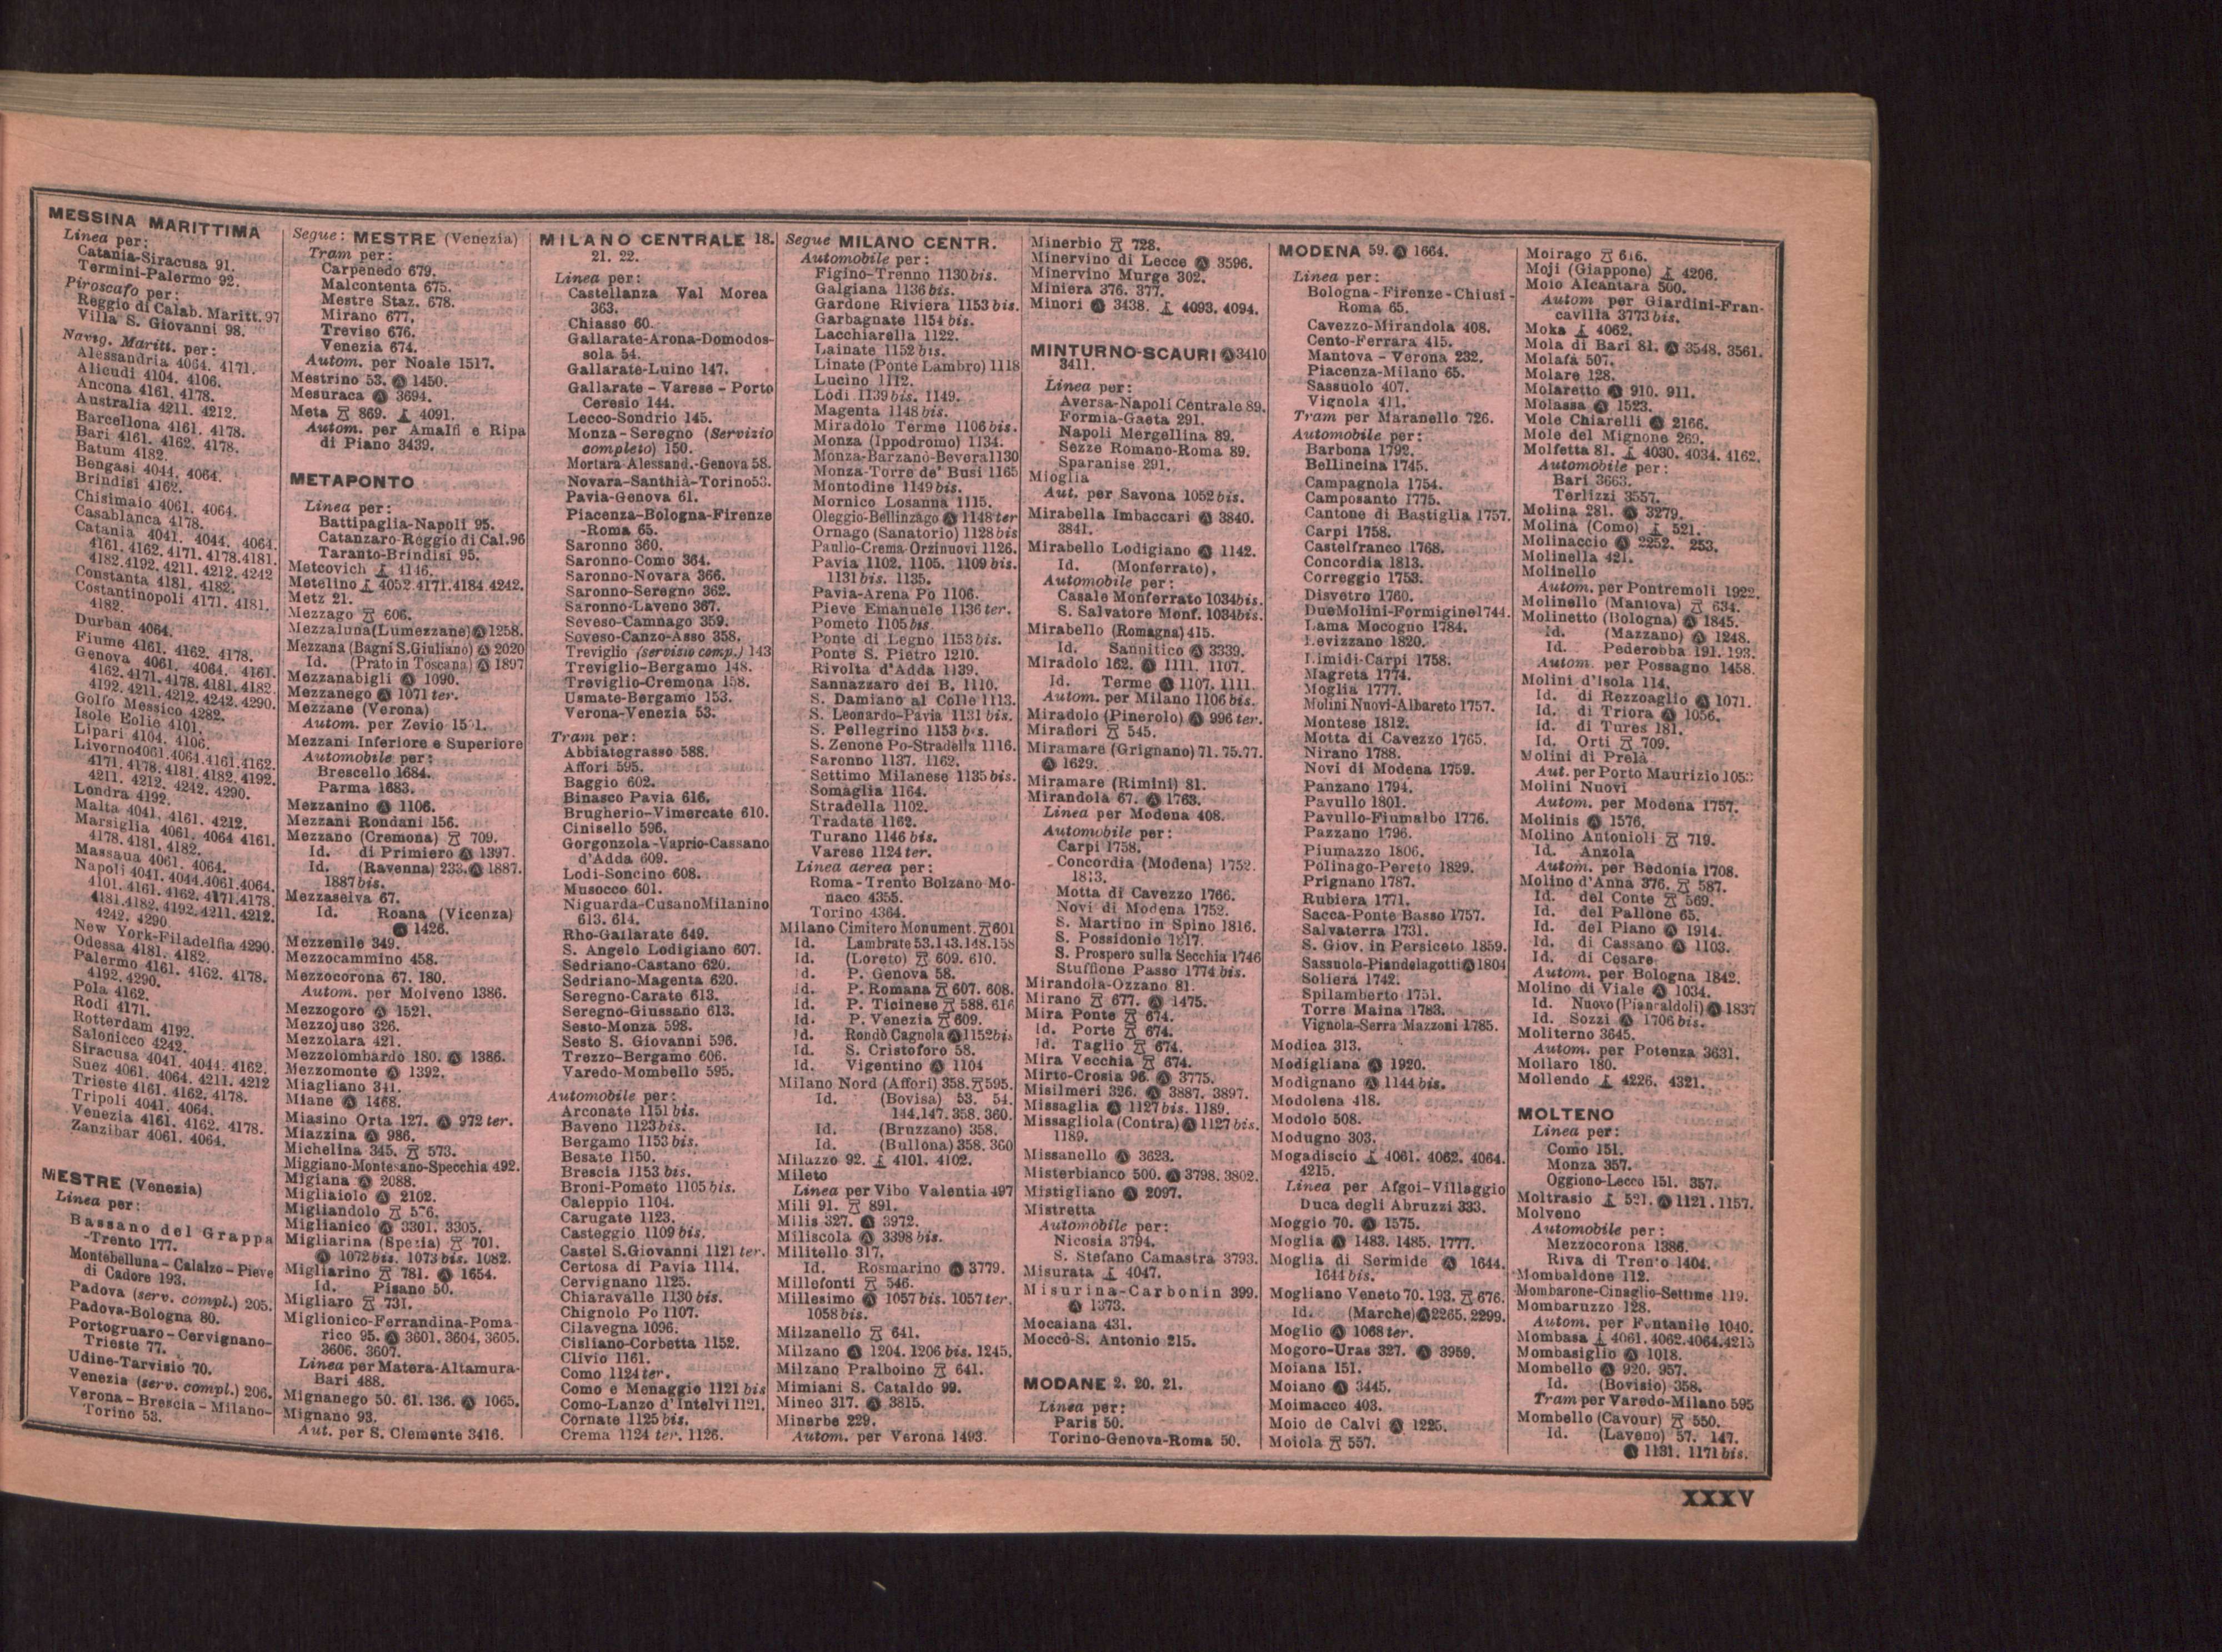 MESSINA MARITTIMA
Linea per:
Catania-Siracusa 91.
Termini-Palermo 92.
Piroscafo per:
Reggio di Calab. Maritt. 97
Villa S. Giovanni 98.
Navig. Maritt. per:
Alessandria 4064. 4171.
Alicudi 4104. 4106.
Ancona 4161. 4178.
Australia 4211. 4212.
Barcellona 4161. 4178.
Bari 4161. 4162. 4178.
Batum 4182.
Bengasi 4044. 4064.
Brindisi 4162.
Chisimaio 4061. 4064.
Casablanca 4178.
Catania 4041. 4044. 4064.
4161. 4162. 4171. 4178. 4181.
4182. 4192. 4211. 4212. 4242
Constanta 4181. 4182.
Costantinopoli 4171. 4181.
4182.
Durban 4064.
Fiume 4161. 4162. 4178.
Genova 4061. 4064. 4161.
4162. 4171. 4178. 4181. 4182.
4192. 4211. 4212. 4242. 4290.
Golfo Messico 4282.
Isole Eolie 4101.
Lipari 4104. 4106.
Livorno 4061. 4064. 4161. 4162.
4171. 4178. 4181. 4182. 4192.
4211. 4212. 4242. 4290.
Londra 4192.
Malta 4041. 4161. 4212.
Marsiglia 4061. 4064 4161.
4178. 4181. 4182.
Massaua 4061. 4064.
Napoli 4041. 4044. 4061. 4064.
4101. 4161. 4162. 4171. 4178.
4181. 4182. 4192. 4211. 4212.
4242. 4290.
New York-Filadelfia 4290.
Odessa 4181. 4182.
Palermo 4161. 4162. 4178.
4192. 4290.
Pola 4162.
Rodi 4171.
Rotterdam 4192.
Salonicco 4242.
Siracusa 4041. 4044. 4162.
Suez 4061. 4064. 4211. 4212
Trieste 4161. 4162. 4178.
Tripoli 4041. 4064.
Venezia 4161. 4162. 4178.
Zanzibar 4061. 4064.
MESTRE (Venezia)
Linea per:
Bassano del Grappa
-Trento 177.
Montebelluna - Calalzo - Pieve
di Cadore 193.
Padova (serv. compl.) 205.
Padova-Bologna 80.
Portogruaro - Cervignano-
Trieste 77.
Udine-Tarvisio 70.
Venezia (serv. compl.) 206.
Verona - Brescia - Milano-
Torino 53.
Segue: MESTRE (Venezia)
Tram per:
Carpenedo 679.
Malcontenta 675.
Mestre Staz. 678.
Mirano 677.
Treviso 676.
Venezia 674.
Autom. per Noale 1517.
Mestrino 53. Ⓐ 1450.
Mesuraca Ⓐ 3694.
Meta 869. 4091.
Autom. per Amalfi e Ripa
di Piano 3439.
METAPONTO
Linea per:
Battipaglia-Napoli 95.
Catanzaro-Reggio di Cal. 96
Taranto-Brindisi 95.
Metcovich 4146.
Metelino 4052. 4171. 4184 4242.
Metz 21.
Mezzago 606.
Mezzaluna (Lumezzane) Ⓐ 1258.
Mezzana (Bagni S. Giuliano) Ⓐ 2020
Id. (Prato in Toscana) Ⓐ 1897
Mezzanabigli Ⓐ 1090.
Mezzanego Ⓐ 1071 ter.
Mezzane (Verona)
Autom. per Zevio
Mezzani Inferiore e Superiore
Automobile per:
Brescello 1684.
Parma 1683.
Mezzanino Ⓐ 1106.
Mezzani Rondani 156.
Mezzano (Cremona) 709.
Id. di Primiero Ⓐ 1397.
Id. (Ravenna) 233. Ⓐ 1887.
1887 bis.
Mezzaselva 67.
Id. Roana (Vicenza)
Ⓐ 1426.
Mezzenile 349.
Mezzocammino 458.
Mezzocorona 67. 180.
Autom. per Molveno 1386.
Mezzogoro Ⓐ 1521.
Mezzojuso 326.
Mezzolara 421.
Mezzolombardo 180. Ⓐ 1386.
Mezzomonte Ⓐ 1392.
Miagliano 341.
Miane Ⓐ 1468.
Miasino Orta 127. Ⓐ 972 ter.
Miazzina Ⓐ 986.
Michelina 345. 573.
Miggiano-Montesano-Specchia 492.
Migiana Ⓐ 2088.
Migliaiolo Ⓐ 2102.
Migliandolo 576.
Miglianico Ⓐ 3301. 3305.
Migliarina (Spezia) 701.
Ⓐ 1072 bis. 1073 bis. 1082.
Migliarino 781. Ⓐ 1654.
Id. Pisano 50.
Migliaro 731.
Miglionico-Ferrandina-Poma-
rico 95. Ⓐ 3601. 3604. 3605.
3606. 3607.
Linea per Matera-Altamura-
Bari 488.
Mignanego 50. 61. 136. Ⓐ 1065.
Mignano 93.
Aut. per S. Clemente 3416.
MILANO CENTRALE 18.
21. 22.
Linea per:
Castellanza Val Morea
363.
Chiasso 60.
Gallarate-Arona-Domodos-
sola 54.
Gallarate-Luino 147.
Gallarate - Varese - Porto
Ceresio 144.
Lecco-Sondrio 145.
Monza - Seregno (Servizio
completo) 150.
Mortara Alessand.-Genova 58.
Novara-Santhià-Torino 53.
Pavia-Genova 61.
Piacenza-Bologna-Firenze
-Roma 65.
Saronno 360.
Saronno-Como 364.
Saronno-Novara 366.
Saronno-Seregno 362.
Saronno-Laveno 367.
Seveso-Camnago 359.
Seveso-Canzo-Asso 358.
Treviglio (servizio comp.) 143
Treviglio-Bergamo 148.
Treviglio-Cremona 158.
Usmate-Bergamo 153.
Verona-Venezia 53.
Tram per:
Abbiategrasso 588.
Affori 595.
Baggio 602.
Binasco Pavia 616.
Brugherio-Vimercate 610.
Cinisello 596.
Gorgonzola-Vaprio-Cassano
d'Adda 609.
Lodi-Soncino 608.
Musocco 601.
Niguarda-Cusano Milanino
613. 614.
Rho-Gallarate 649.
S. Angelo Lodigiano 607.
Sedriano-Castano 620.
Sedriano-Magenta 620.
Seregno-Carate 613.
Seregno-Giussano 613.
Sesto-Monza 598.
Sesto S. Giovanni 596.
Trezzo-Bergamo 606.
Varedo-Mombello 595.
Automobile per:
Arconate 1151 bis.
Baveno 1123 bis.
Bergamo 1153 bis.
Besate 1150.
Brescia 1153 bis.
Broni-Pometo 1105 bis.
Caleppio 1104.
Carugate 1123.
Casteggio 1109 bis.
Castel S. Giovanni 1121 ter.
Certosa di Pavia 1114.
Cervignano 1125.
Chiaravalle 1130 bis.
Chignolo Po 1107.
Cilavegna 1096.
Cisliano-Corbetta 1152.
Clivio 1161.
Como 1124 ter.
Como e Menaggio 1121 bis
Como-Lanzo d'Intelvi 1121.
Cornate 1125 bis.
Crema 1124 ter. 1126.
Segue MILANO CENTR.
Automobile per:
Figino-Trenno 1130 bis.
Galgiana 1136 bis.
Gardone Riviera 1153 bis.
Garbagnate 1154 bis.
Lacchiarella 1122.
Lainate 1152 bis.
Linate (Ponte Lambro) 1118
Lucino 1112.
Lodi 1139 bis. 1149.
Magenta 1148 bis.
Miradolo Terme 1106 bis.
Monza (Ippodromo) 1134.
Monza-Barzanò-Bevera 1130
Monza-Torre de' Busi 1165
Montodine 1149 bis.
Mornico Losanna 1115.
Oleggio-Bellinzago Ⓐ 1148 ter
Ornago (Sanatorio) 1128 bis
Paullo-Crema-Orzinuovi 1126.
Pavia 1102. 1105. 1109 bis.
1131 bis. 1135.
Pavia-Arena Po 1106.
Pieve Emanuele 1136 ter.
Pometo 1105 bis.
Ponte di Legno 1153 bis.
Ponte S. Pietro 1210.
Rivolta d'Adda 1139.
Sannazzaro dei B. 1110.
S. Damiano al Colle 1113.
S. Leonardo-Pavia 1131 bis.
S. Pellegrino 1153 bis.
S. Zenone Po-Stradella 1116.
Saronno 1137. 1162.
Settimo Milanese 1135 bis.
Somaglia 1164.
Stradella 1102.
Tradate 1162.
Turano 1146 bis.
Varese 1124 ter.
Linea aerea per:
Roma-Trento Bolzano Mo-
naco 4355.
Torino 4364.
Milano Cimitero Monument. 601
Id. Lambrate 53. 143. 148. 158
Id. (Loreto) 609. 610.
Id. P. Genova 58.
Id. P. Romana 607. 608.
Id. P. Ticinese 588. 616
Id. P. Venezia 609.
Id. Rondò Cagnola Ⓐ 1152 bis
Id. S. Cristoforo 58.
Id. Vigentino Ⓐ 1104
Milano Nord (Affori) 358. 595.
Id. (Bovisa) 53. 54.
144. 147. 358. 360.
Id. (Bruzzano) 358.
Id. (Bullona) 358. 360
Milazzo 92. 4101. 4102.
Mileto
Linea per Vibo Valentia 497
Mili 91. 891.
Milis 327. Ⓐ 3972.
Miliscola Ⓐ 3398 bis.
Militello 317.
Id. Rosmarino Ⓐ 3779.
Millefonti 546.
Millesimo Ⓐ 1057 bis. 1057 ter.
1058 bis.
Milzanello 641.
Milzano Ⓐ 1204. 1206 bis. 1245.
Milzano Pralboino 641.
Mimiani S. Cataldo 99.
Mineo 317. Ⓐ 3815.
Minerbe 229.
Autom. per Verona 1493.
Minerbio 728.
Minervino di Lecce Ⓐ 3596.
Minervino Murge 302.
Miniera 376. 377.
Minori Ⓐ 3438. 4093. 4094.
MINTURNO-SCAURI Ⓐ 3410
3411.
Linea per:
Aversa-Napoli Centrale 89.
Formia-Gaeta 291.
Napoli Mergellina 89.
Sezze Romano-Roma 89.
Sparanise 291.
Mioglia
Aut. per Savona 1052 bis.
Mirabella Imbaccari Ⓐ 3840.
3841.
Mirabello Lodigiano Ⓐ 1142.
Id. (Monferrato).
Automobile per:
Casale Monferrato 1034 bis.
S. Salvatore Monf. 1034 bis.
Mirabello (Romagna) 415.
Id. Sannitico Ⓐ 3339.
Miradolo 162. Ⓐ 1111. 1107.
Id. Terme Ⓐ 1107. 1111.
Autom. per Milano 1106 bis.
Miradolo (Pinerolo) Ⓐ 996 ter.
Mirafiori 545.
Miramare (Grignano) 71. 75. 77.
Ⓐ 1629.
Miramare (Rimini) 81.
Mirandola 67. Ⓐ 1763.
Linea per Modena 408.
Automobile per:
Carpi 1758.
Concordia (Modena) 1752.
1813.
Motta di Cavezzo 1766.
Novi di Modena 1752.
S. Martino in Spino 1816.
S. Possidonio 1817.
S. Prospero sulla Secchia 1746
Stuffione Passo 1774 bis.
Mirandola-Ozzano 81.
Mirano 677. Ⓐ 1475.
Mira Ponte 674.
Id. Porte 674.
Id. Taglio 674.
Mira Vecchia 674.
Mirto-Crosia 96. Ⓐ 3775.
Misilmeri 326. Ⓐ 3887. 3897.
Missaglia Ⓐ 1127 bis. 1189.
Missagliola (Contra) Ⓐ 1127 bis.
1189.
Missanello Ⓐ 3623.
Misterbianco 500. Ⓐ 3798. 3802.
Mistigliano Ⓐ 2097.
Mistretta
Automobile per:
Nicosia 3794.
S. Stefano Camastra 3793.
Misurata 4047.
Misurina-Carbonin 399.
Ⓐ 1373.
Mocaiana 431.
Moccò-S. Antonio 215.
MODANE 2. 20. 21.
Linea per:
Paris 50.
Torino-Genova-Roma 50.
MODENA 59. Ⓐ 1664.
Linea per:
Bologna-Firenze-Chiusi-
Roma 65.
Cavezzo-Mirandola 408.
Cento-Ferrara 415.
Mantova - Verona 232.
Piacenza-Milano 65.
Sassuolo 407.
Vignola 411.
Tram per Maranello 726.
Automobile per:
Barbona 1792.
Bellincina 1745.
Campagnola 1754.
Camposanto 1775.
Cantone di Bastiglia 1757.
Carpi 1758.
Castelfranco 1768.
Concordia 1813.
Correggio 1753.
Disvetro 1760.
Due Molini-Formigine 1744.
Lama Mocogno 1784.
Levizzano 1820.
Limidi-Carpi 1758.
Magreta 1774.
Moglia 1777.
Molini Nuovi-Albareto 1757.
Montese 1812.
Motta di Cavezzo 1765.
Nirano 1788.
Novi di Modena 1759.
Panzano 1794.
Pavullo 1801.
Pavullo-Fiumalbo 1776.
Pazzano 1796.
Piumazzo 1806.
Polinago-Pereto 1829.
Prignano 1787.
Rubiera 1771.
Sacca-Ponte Basso 1757.
Salvaterra 1731.
S. Giov. in Persiceto 1859.
Sassuolo-Piandelagotti Ⓐ 1804
Soliera 1742.
Spilamberto 1751.
Torre Maina 1783.
Vignola-Serra Mazzoni 1785.
Modica 313.
Modigliana Ⓐ 1920.
Modignano Ⓐ 1144 bis.
Modolena 418.
Modolo 508.
Modugno 303.
Mogadiscio 4061. 4062. 4064.
4215.
Linea per Afgoi-Villaggio
Duca degli Abruzzi 333.
Moggio 70. Ⓐ 1575.
Moglia Ⓐ 1483. 1485. 1777.
Moglia di Sermide Ⓐ 1644.
1644 bis.
Mogliano Veneto 70. 193. 676.
Id. (Marche) Ⓐ 2265. 2299.
Moglio Ⓐ 1068 ter.
Mogoro-Uras 327. Ⓐ 3959.
Moiana 151.
Moiano Ⓐ 3445.
Moimacco 403.
Moio de Calvi Ⓐ 1225.
Moiola 557.
Moirago 616.
Moji (Giappone) 4206.
Moio Alcantara 500.
Autom per Giardini-Fran-
cavilla 3773 bis.
Moka 4062.
Mola di Bari 81. Ⓐ 3548. 3561.
Molafà 507.
Molare 128.
Molaretto Ⓐ 910. 911.
Molassa Ⓐ 1523.
Mole Chiarelli Ⓐ 2166.
Mole del Mignone 269.
Molfetta 81. 4030. 4034. 4162.
Automobile per:
Bari 3663.
Terlizzi 3557.
Molina 281. Ⓐ 3279.
Molina (Como) 521.
Molinaccio Ⓐ 2252. 253.
Molinella 421.
Molinello
Autom. per Pontremoli 1922.
Molinello (Mantova) 634.
Molinetto (Bologna) Ⓐ 1845.
Id. (Mazzano) Ⓐ 1248.
Id. Pederobba 191. 193.
Autom. per Possagno 1458.
Molini d'Isola 114.
Id. di Rezzoaglio Ⓐ 1071.
Id. di Triora Ⓐ 1056.
Id. di Tures 181.
Id. Orti 709.
Molini di Prelà
Aut. per Porto Maurizio
Molini Nuovi
Autom. per Modena 1757.
Molinis Ⓐ 1576.
Molino Antonioli 719.
Id. Anzola
Autom. per Bedonia 1708.
Molino d'Anna 376. 587.
Id. del Conte 569.
Id. del Pallone 65.
Id. del Piano Ⓐ 1914.
Id. di Cassano Ⓐ 1103.
Id. di Cesare
Autom. per Bologna 1842.
Molino di Viale Ⓐ 1034.
Id. Nuovo (Piancaldoli) Ⓐ 1837
Id. Sozzi Ⓐ 1706 bis.
Moliterno 3645.
Autom. per Potenza 3631.
Mollaro 180.
Mollendo 4226. 4321.
MOLTENO
Linea per:
Como 151.
Monza 357.
Oggiono-Lecco 151. 357.
Moltrasio 521. Ⓐ 1121. 1157.
Molveno
Automobile per:
Mezzocorona 1386.
Riva di Trento 1404.
Mombaldone 112.
Mombarone-Cinaglio-Settime 119.
Mombaruzzo 128.
Autom. per Fontanile 1040.
Mombasa 4061. 4062. 4064. 4215
Mombasiglio Ⓐ 1018.
Mombello Ⓐ 920. 957.
Id. (Bovisio) 358.
Tram per Varedo-Milano 595
Mombello (Cavour) 550.
Id. (Laveno) 57. 147.
Ⓐ 1131. 1171 bis.
XXXV